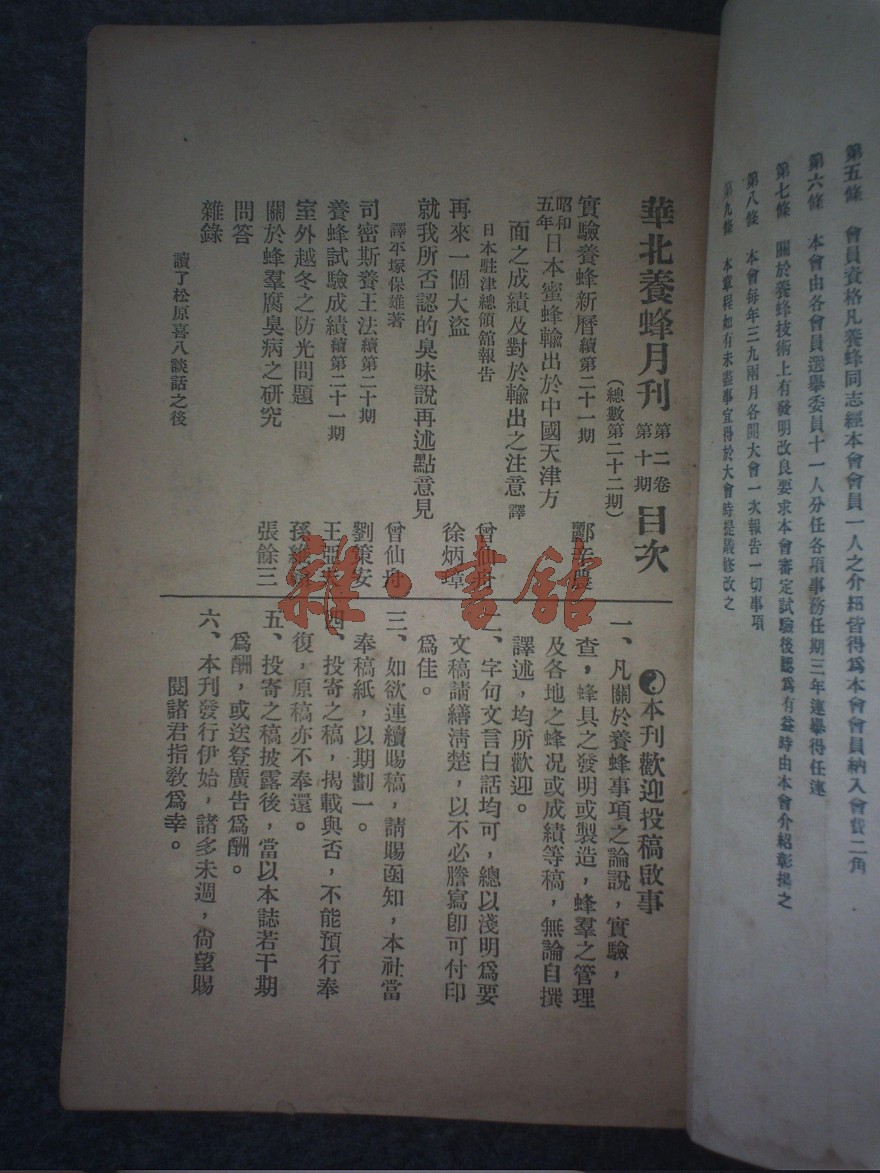 第五條　會員資格凡養蜂同志經本會會員一人之介紹皆得爲本會會員納入會費二角
第六條　本會由各會員選舉委員十一人分任各項事務任期三年連舉得任連
第七條　關於養蜂技術上有發明改良要求本會審定試驗後認爲有益時由本會介紹彰揚之
第八條　本會每年三九兩月各開大會一次報告一切事項
第九條　本章程如有未盡事宜得於大會時提議修改之
華北養蜂月刊 第二卷 第十期 目次
（總數第二十二期）
實驗養蜂新曆 續第二十一期
昭和五年 日本蜜蜂輸出於中國天津方
面之成績及對於輸出之注意 譯
日本駐津總領舘報告 曾仙舟
再來一個大盜 徐炳璋
就我所否認的臭味說再述點意見
譯平塚保雄著 曾仙舟
司密斯養王法 續第二十期 劉策安
養蜂試驗成績 續第二十一期 王亞
室外越冬之防光問題 孫
關於蜂羣腐臭病之研究 張餘三
問答
雜錄
讀了松原喜八談話之後
本刊歡迎投稿啟事
一、凡關於養蜂事項之論說，實驗，
查，蜂具之發明或製造，蜂羣之管理
及各地之蜂況或成績等稿，無論自撰
譯述，均所歡迎。
二、字句文言白話均可，總以淺明爲要
文稿請繕清楚，以不必謄寫卽可付印
爲佳。
三、如欲連續賜稿，請賜函知，本社當
奉稿紙，以期劃一。
四、投寄之稿，揭載與否，不能預行奉
復，原稿亦不奉還。
五、投寄之稿披露後，當以本誌若干期
爲酬，或送登廣告爲酬。
六、本刊發行伊始，諸多未週，尙望賜
閱諸君指敎爲幸。
雜·書館